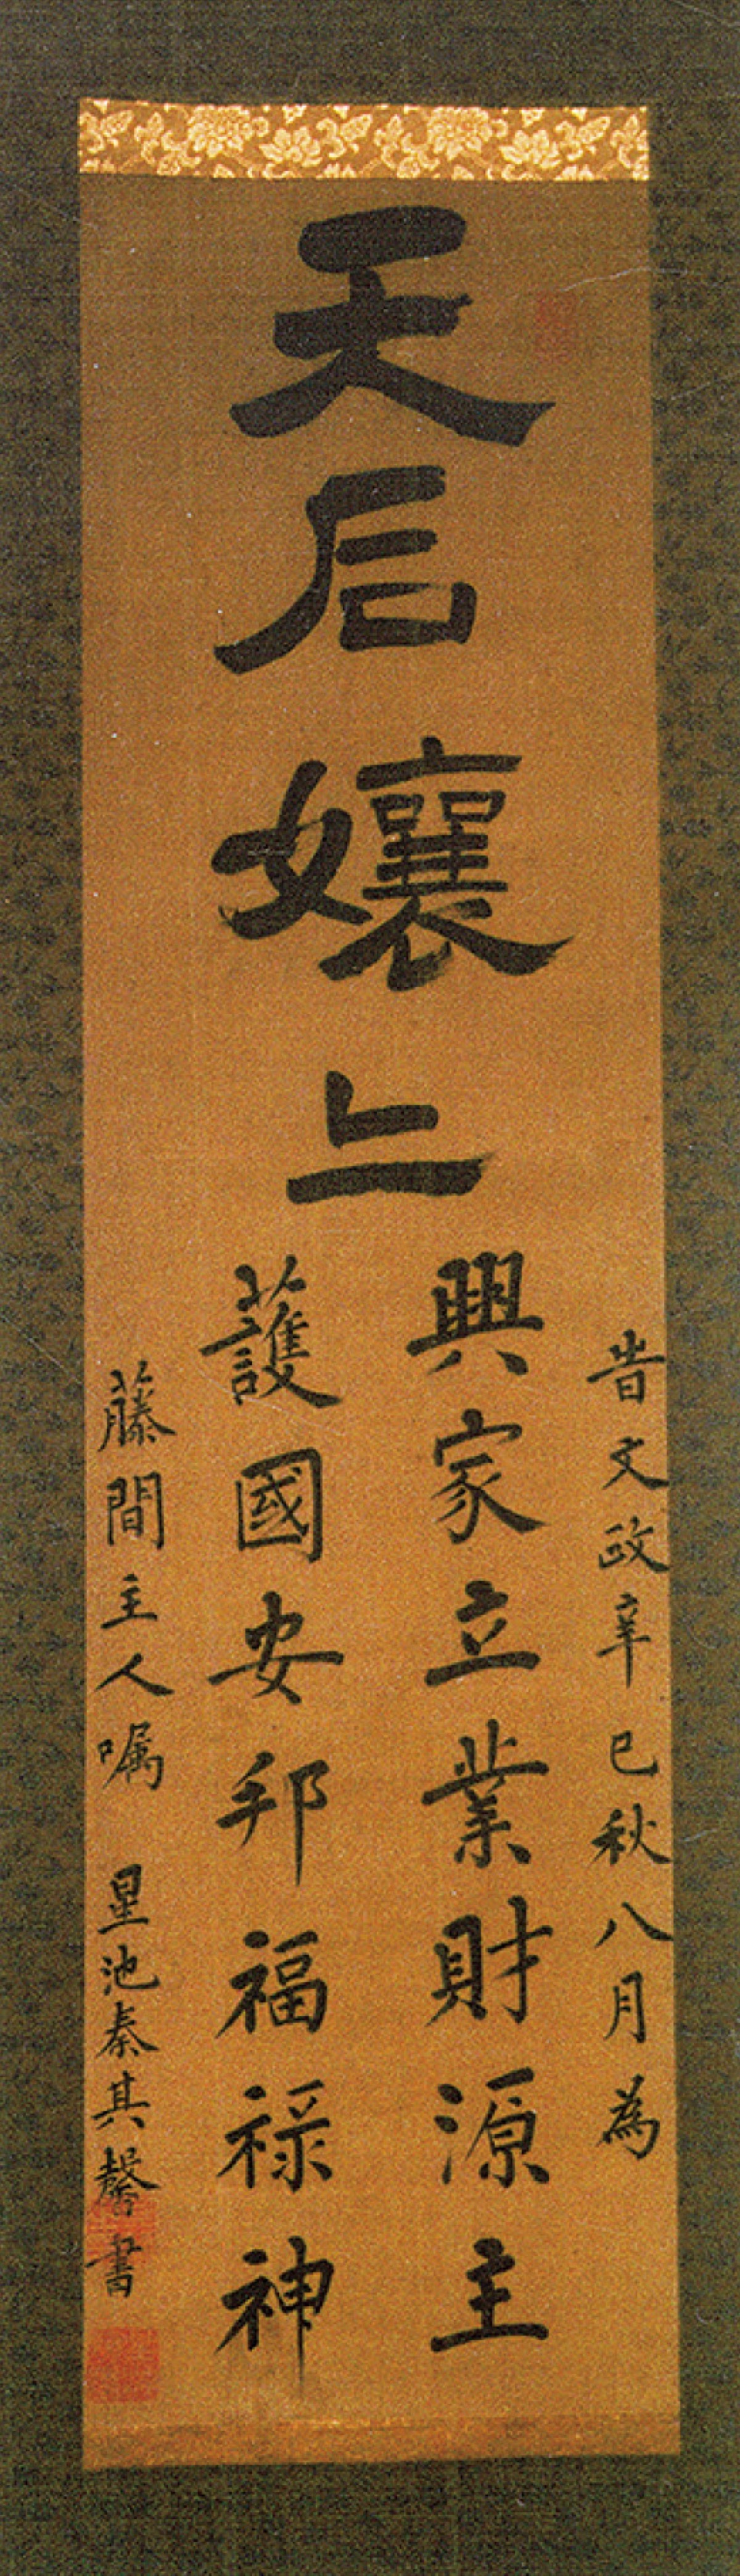 天后孃々
旹文政辛巳秋八月為
興家立業財源主
護國安邦福禄神
藤間主人嘱 星池秦其馨書